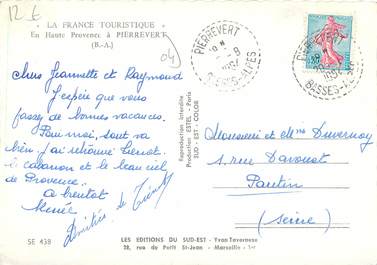 12 €
" LA FRANCE TOURISTIQUE "
En Haute Provence à PIERREVERT
(B.-A.)
04
Chers Jeannette et Raymond
J'espère que vous
passez de bonnes vacances.
Pour moi, tout va
bien. J'ai retrouvé
Cabanon et le beau ciel
de Provence.
A bientôt
SE 438
Reproduction interdite
Production ESTEL - Paris
SUD - EST - COLOR
PIERREVERT
BASSES-ALPES
PIERREVERT
BASSES-ALPES
Monsieur et Mme Duvernoy
1 rue Davoust
Pantin
(Seine)
LES EDITIONS DU SUD-EST - Yvan Taverneux
28, rue du Petit St-Jean - Marseille - 1er